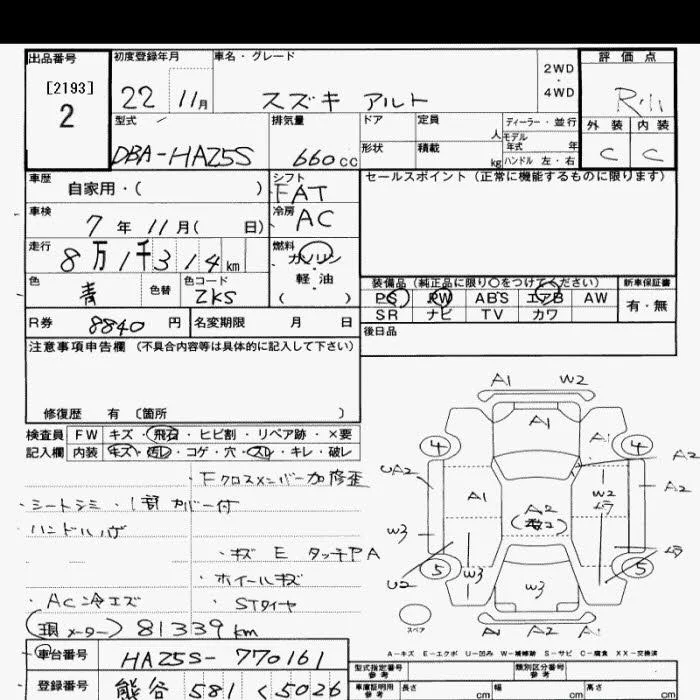 出品番号 初度登録年月 車名・グレード 2WD・4WD 評価点
[2193]
2
22 11月 スズキ アルト
型式 排気量 ドア 定員 人 ディーラー・並行 外装 内装
DBA-HAZ5S 660cc 形状 積載 kg モデル年式 年 ハンドル 左・右 C C
車歴 自家用・( ) シフト FAT セールスポイント (正常に機能するものに限ります)
車検 7年 11月( 日) 冷房 AC
走行 8万1千314km 燃料 ガソリン・軽油 ( )
色 青 色替 色コード ZKS
装備品 (純正品に限り○をつけてください) 新車保証書
PS PW ABS エアB AW 有・無
SR ナビ TV カワ
R券 8840円 名変期限 月 日 後日品
注意事項申告欄 (不具合内容等は具体的に記入して下さい)
修復歴 有 〔箇所 〕
検査員 FW キズ・飛石・ヒビ割・リペア跡・×要
記入欄 内装 キズ・汚レ・コゲ・穴・スレ・キレ・破レ
・Fクロスメンバー加修歪
・シートシミ ・1部カバー付
・ハンドル
・キズ E タッチPA
・ホイールキズ
・AC冷エズ ・STタイヤ
(現メーター) 81339km
A1 W2
A1
4 A1 4
UA2 A2
A1 W2 A2
A2
W3
5 5
W3 W3
U2
スペア A1 A2 A1
A-キズ E-エクボ U-凹み W-補修跡 S-サビ C-腐食 XX-交換済
車台番号 HAZ5S-770161 型式指定番号 参考 類別区分番号 参考
登録番号 熊谷 581 く 5026 車庫証明用 参考 長さ cm 幅 cm 高さ cm